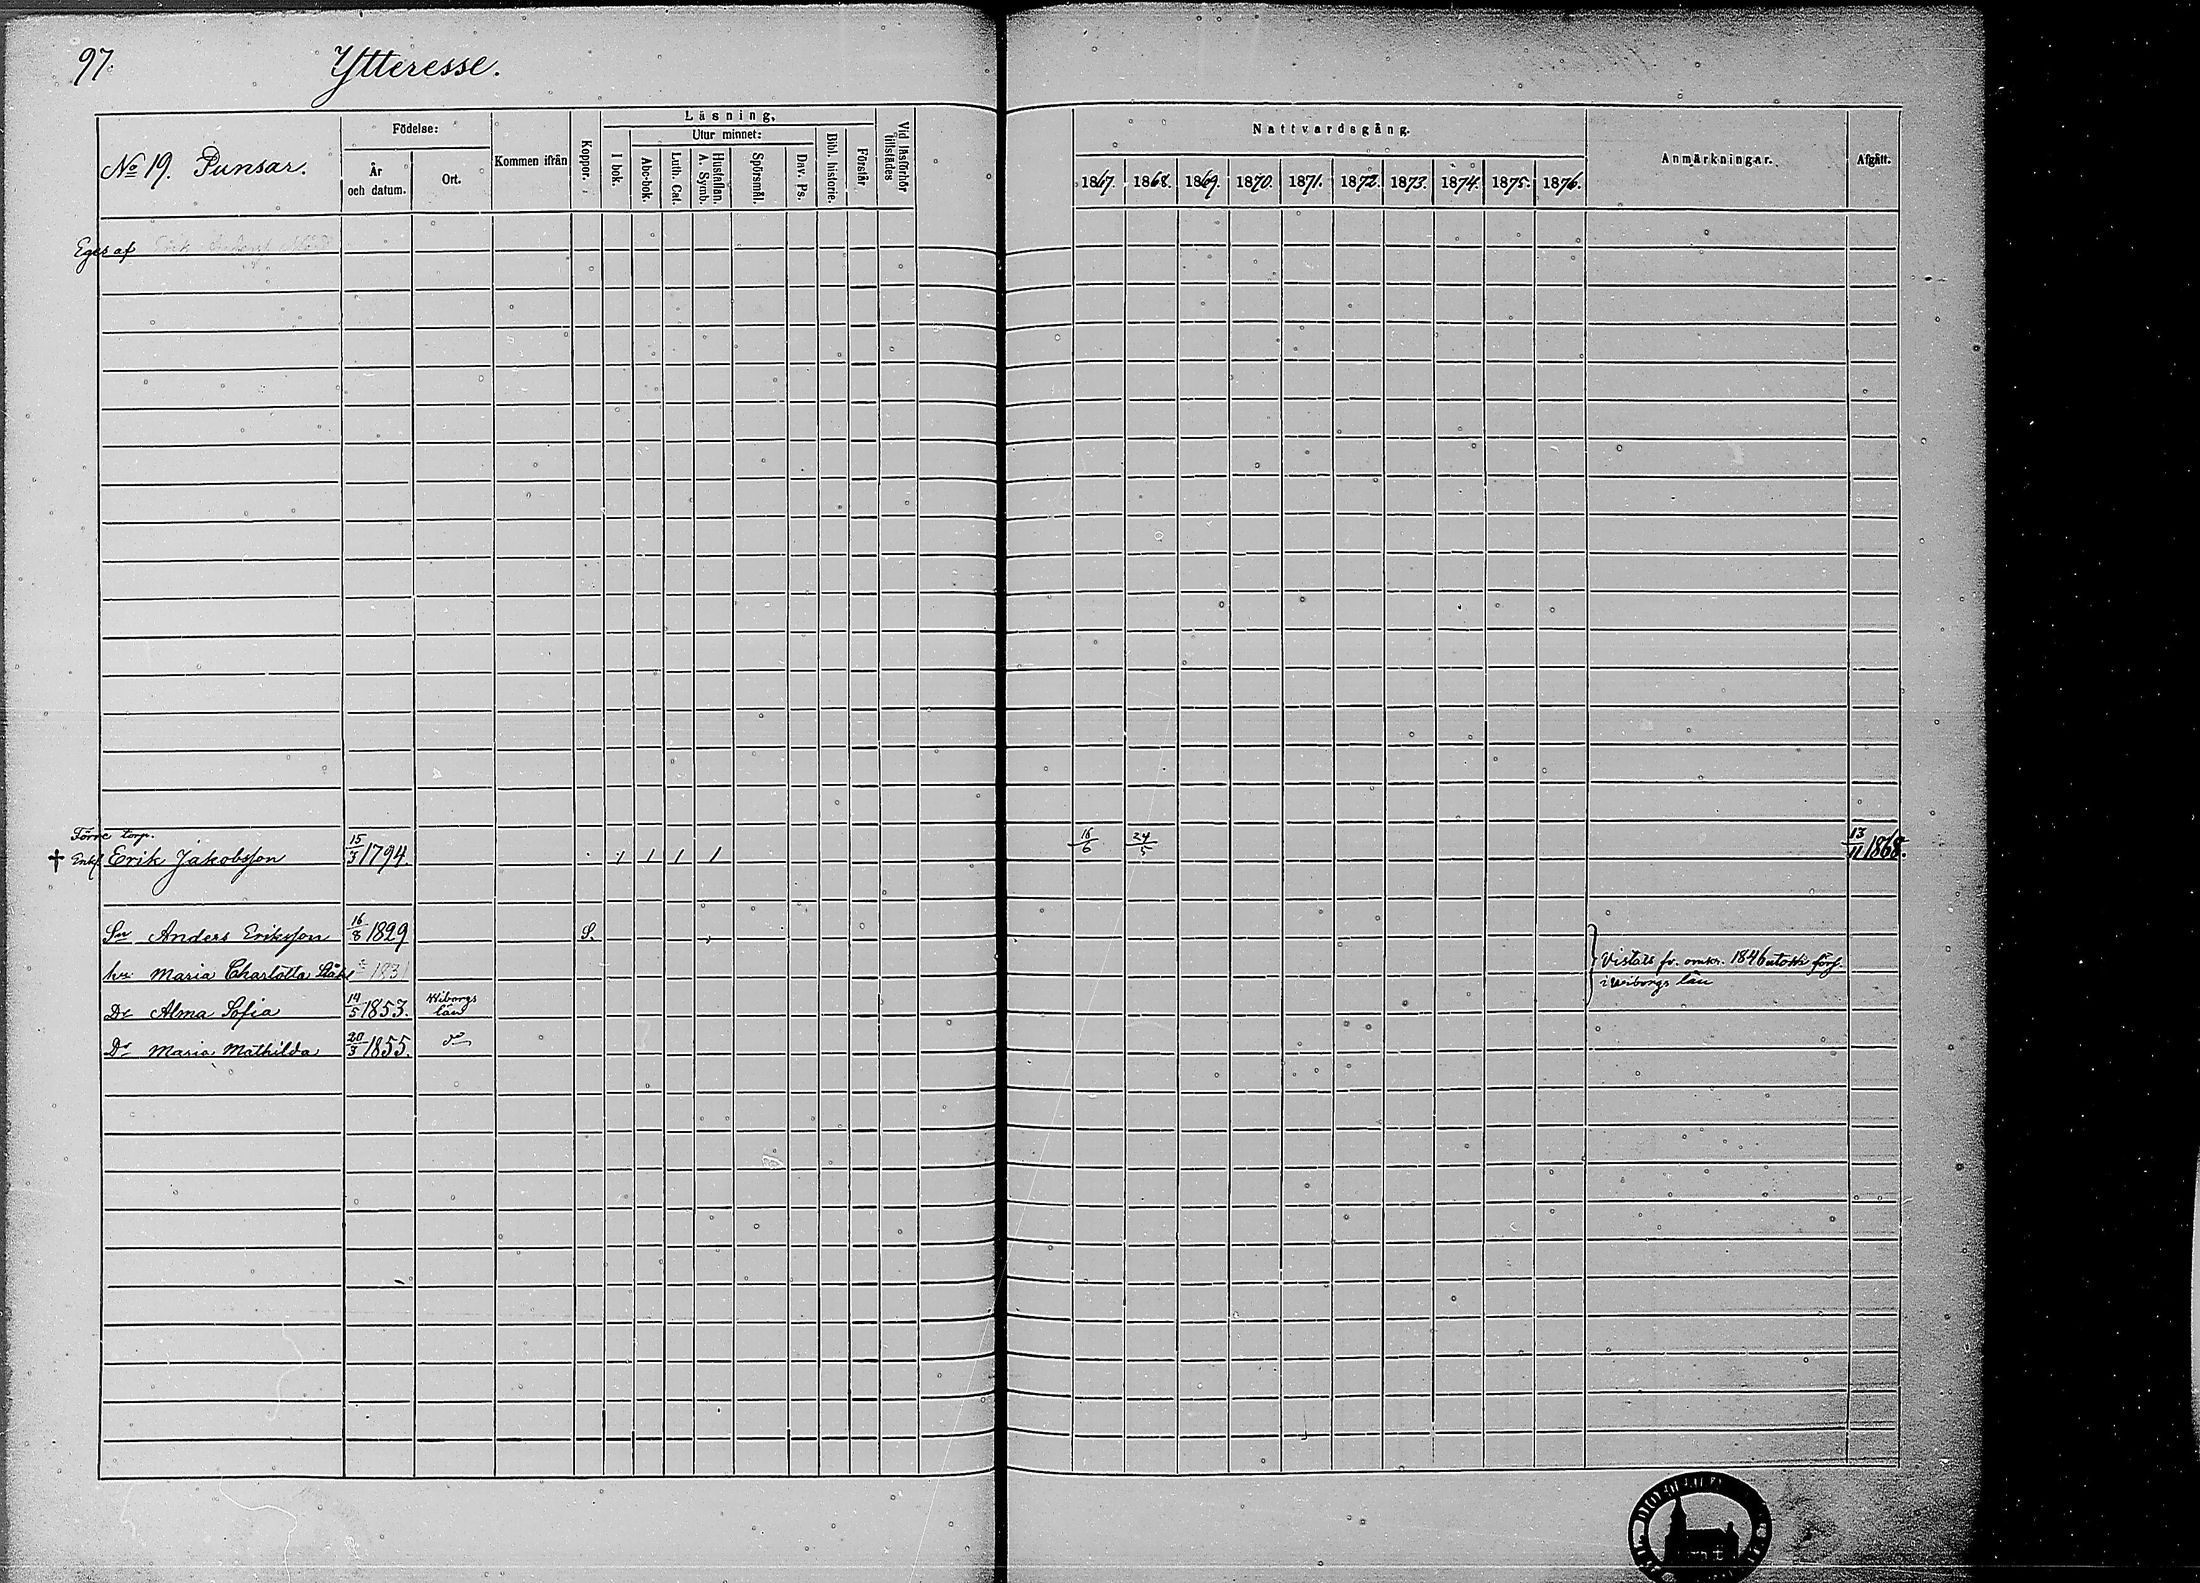 97. Ytteresse.
No 19. Punsar.
Födelse:
År och datum.
Ort.
Kommen ifrån
Koppor.
Läsning.
I bok.
Utur minnet:
Abc-bok.
Luth. Cat.
Hustaflan. A. Symb.
Spörsmål.
Dav. Ps.
Bibl. historie.
Förstår
Vid läsförhör tillstädes
Nattvardsgång.
1867. 1868. 1869. 1870. 1871. 1872. 1873. 1874. 1875. 1876.
Anmärkningar.
Afgått.
Eges af Erik Anders
Förre torp.
† Enkl. Erik Jakobsson 15/3 1794. 1 1 1 1 16/6 24/5 13/11 1868.
Sn Anders Eriksson 16/8 1829 S.
hu Maria Charlotta 1831
Vistats fr. omkr. 1846 utom förs.
i Wiborgs län
Dr Alma Sofia 14/5 1853. Wiborgs län
Dr Maria Mathilda 20/3 1855. do